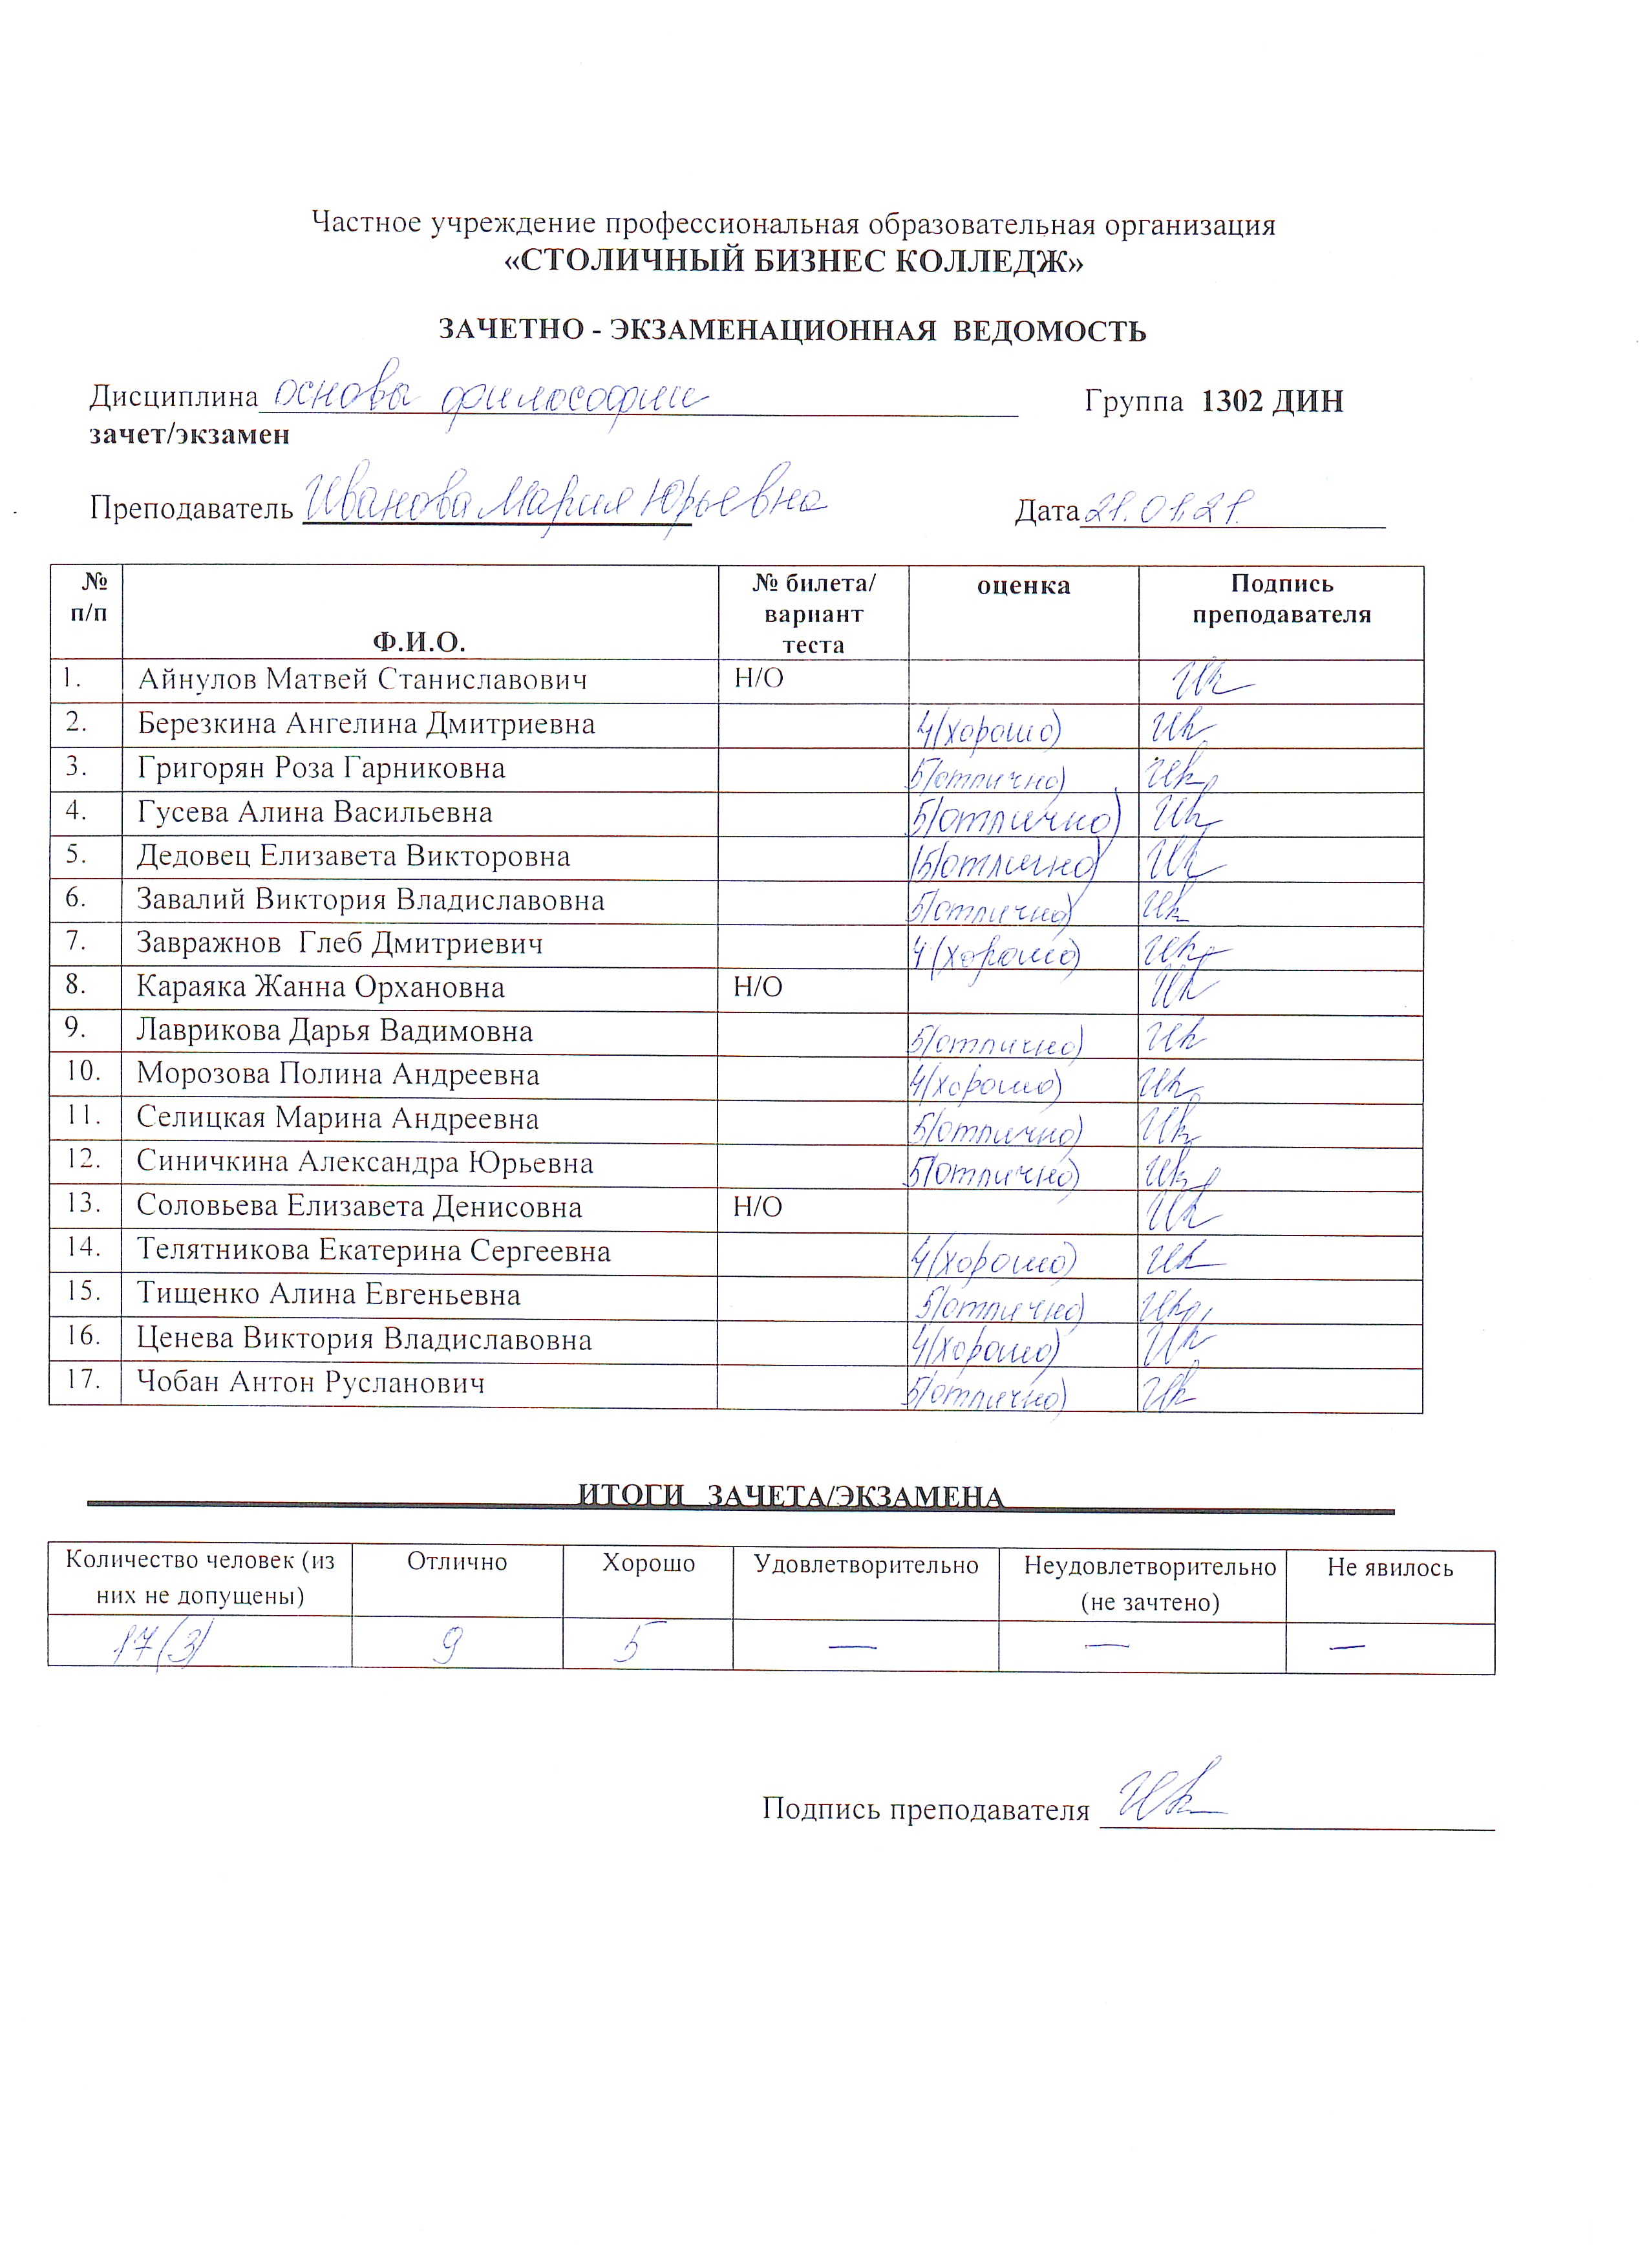 Частное учреждение профессиональная образовательная организация
«СТОЛИЧНЫЙ БИЗНЕС КОЛЛЕДЖ»
ЗАЧЕТНО - ЭКЗАМЕНАЦИОННАЯ ВЕДОМОСТЬ
Дисциплина основы философии Группа 1302 ДИН
зачет/экзамен
Преподаватель Иванова Мария Юрьевна Дата 21.01.21.
№ п/п Ф.И.О. № билета/ вариант теста оценка Подпись преподавателя
1. Айнулов Матвей Станиславович Н/О
2. Березкина Ангелина Дмитриевна 4(хорошо)
3. Григорян Роза Гарниковна 5(отлично)
4. Гусева Алина Васильевна 5(отлично)
5. Дедовец Елизавета Викторовна 5(отлично)
6. Завалий Виктория Владиславовна 5(отлично)
7. Завражнов Глеб Дмитриевич 4(хорошо)
8. Караяка Жанна Орхановна Н/О
9. Лаврикова Дарья Вадимовна 5(отлично)
10. Морозова Полина Андреевна 4(хорошо)
11. Селицкая Марина Андреевна 5(отлично)
12. Синичкина Александра Юрьевна 5(отлично)
13. Соловьева Елизавета Денисовна Н/О
14. Телятникова Екатерина Сергеевна 4(хорошо)
15. Тищенко Алина Евгеньевна 5(отлично)
16. Ценева Виктория Владиславовна 4(хорошо)
17. Чобан Антон Русланович 5(отлично)
ИТОГИ ЗАЧЕТА/ЭКЗАМЕНА
Количество человек (из них не допущены) Отлично Хорошо Удовлетворительно Неудовлетворительно (не зачтено) Не явилось
17(3) 9 5 — — —
Подпись преподавателя